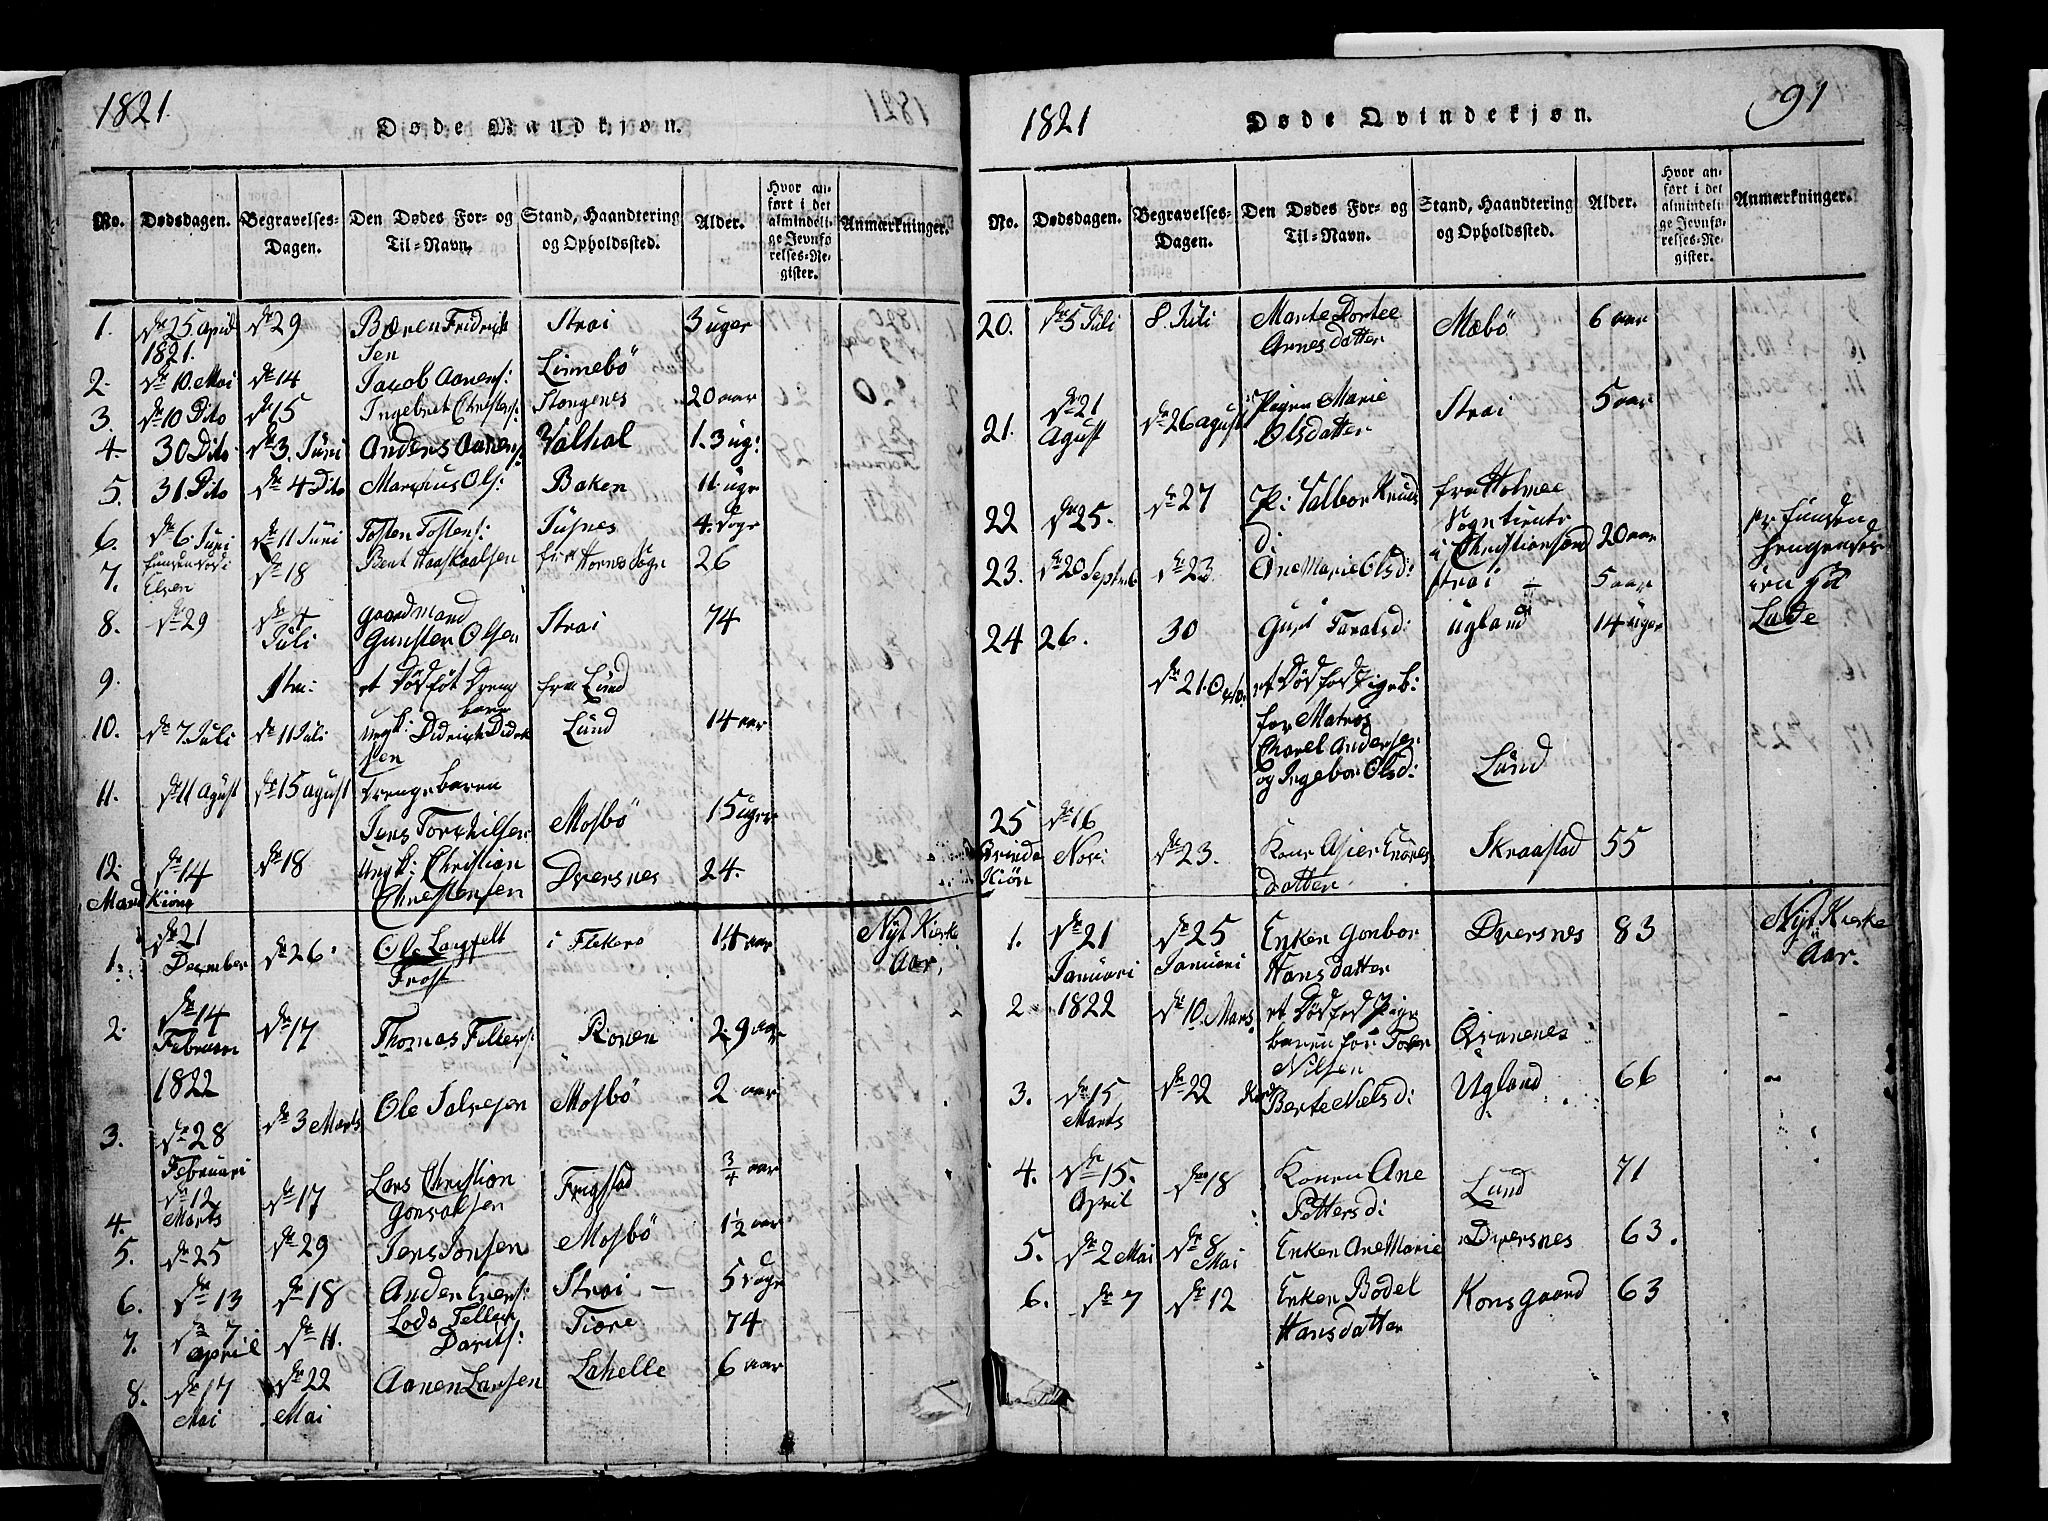 1821.
Døde Mandkjøn.
No. Dødsdagen. Begravelses-Dagen. Den Dødes For- og Til-Navn. Stand, Haandtering og Opholdssted. Alder. Hvor anført i det almindelige Jevnførelses-Register. Anmærkninger.
1. d 25 April 1821. d 29 Bæren Fridrichsen Strai 3 uger
2. d 10. Mai d 14 Jacob Aanens: Linnebö
3. d 10 Dito d 15 Ingebret Christens: Stongenes 20 aar
4. 30 Dito d 3. Juni Anders Aanens: Valhal 1. 3 ug:
5. 31. Dito d 4 Dito Marcus Ols: Baken 11 ugr
6. d 6. Juni d 11 Juni Tosten Tostens: 4. Dage
7. Elven d 18 Bent fra Hornes Sogn 26
8. d 29 d 4 Juli Gaardmand Gunsten Olsen Strai 74
9. et Dödföt Dreng barn fra Lund
10. d 7. Juli d 11 Juli ungk: Didrich Didriksen Lund 14 aar
11. d 11 Agust d 15 agust Drengebaren Jens Torkilsen Mosbö 15 uger
12 d 14 d 18 ungk: Christian Christensen Dversnes 24.
Mand Kiöne
1. d 21 December d 26 Ole Langfelt Frost i Flekerö 14 aar Nyt Kierke Aar.
2. d 14 Februari d 17 Thomas Fellers: Ronen 29 aar
1822 Ole Salvesen Mosbö 2 aar
3. d 28 Februari d 3 Marts
4. d 12 Marts d 17 Lars Christian Gonvalsen Frigstad 3/4 aar
5. d 25 d 29 Jens Jonsen Mosbö 1 1/2 aar
6. d 13 d 18 Anders Evens: Strai 5 Dage
7. d 7 april d 11. Lods Tellef Davids: Tiöre 74
8. d 17 Mai d 22 Mai Aanen Larsen Lahelle 6 aar
1821
Døde Qvindekjøn.
91
No. Dødsdagen. Begravelses-Dagen. Den Dødes For- og Til-Navn. Stand, Haandtering og Opholdssted. Alder. Hvor anført i det almindelige Jevnførelses-Register. Anmærkninger.
20. d 5 Juli 8. Juli Marte Dortee Arnesdatter Mæbö 6 aar
21. d 21 Agust d 26 Agust Pigen Marie Olsdatter Strai 5 aar
22 d 25. d 27 P: Valbor Knuds D: fra Holmee Sogn tiente i Christiansand 20 aar er funden
23. d 20 Septmb d 23 Ane Marie Olsd: Strai 5 aar
24 26. 30 Guri Taralsd: Ugland 14 uger Lade
d 21. Octo: et Dödfod Pigeb: for Matros Charel Andersen og Ingebor Olsd: Lund
25 d 16 Nov: d 23. Kone Asier Enersdatter Skraastad 55
Qvinde Kiön
1. d 21 Januari d 25 Januari Enken Gonbor Hansdatter Dversnes 83 Nyt Kierke Aar.
2 1822 d 10. Mars et Dödfod Pige baren for Tore Nilsen Qvanenes
3. d 15 Marts d 22 Kone Berte Nielsd: Ugland 66
4. d 15. April d 18 Konen Ane Pettersd: Lund 71
5. d 2 Mai d 8 Mai Enken Ane Marie Dversnes 63.
6. d 7 d 12 Enken Bodel Hansdatter Konsgaard 63